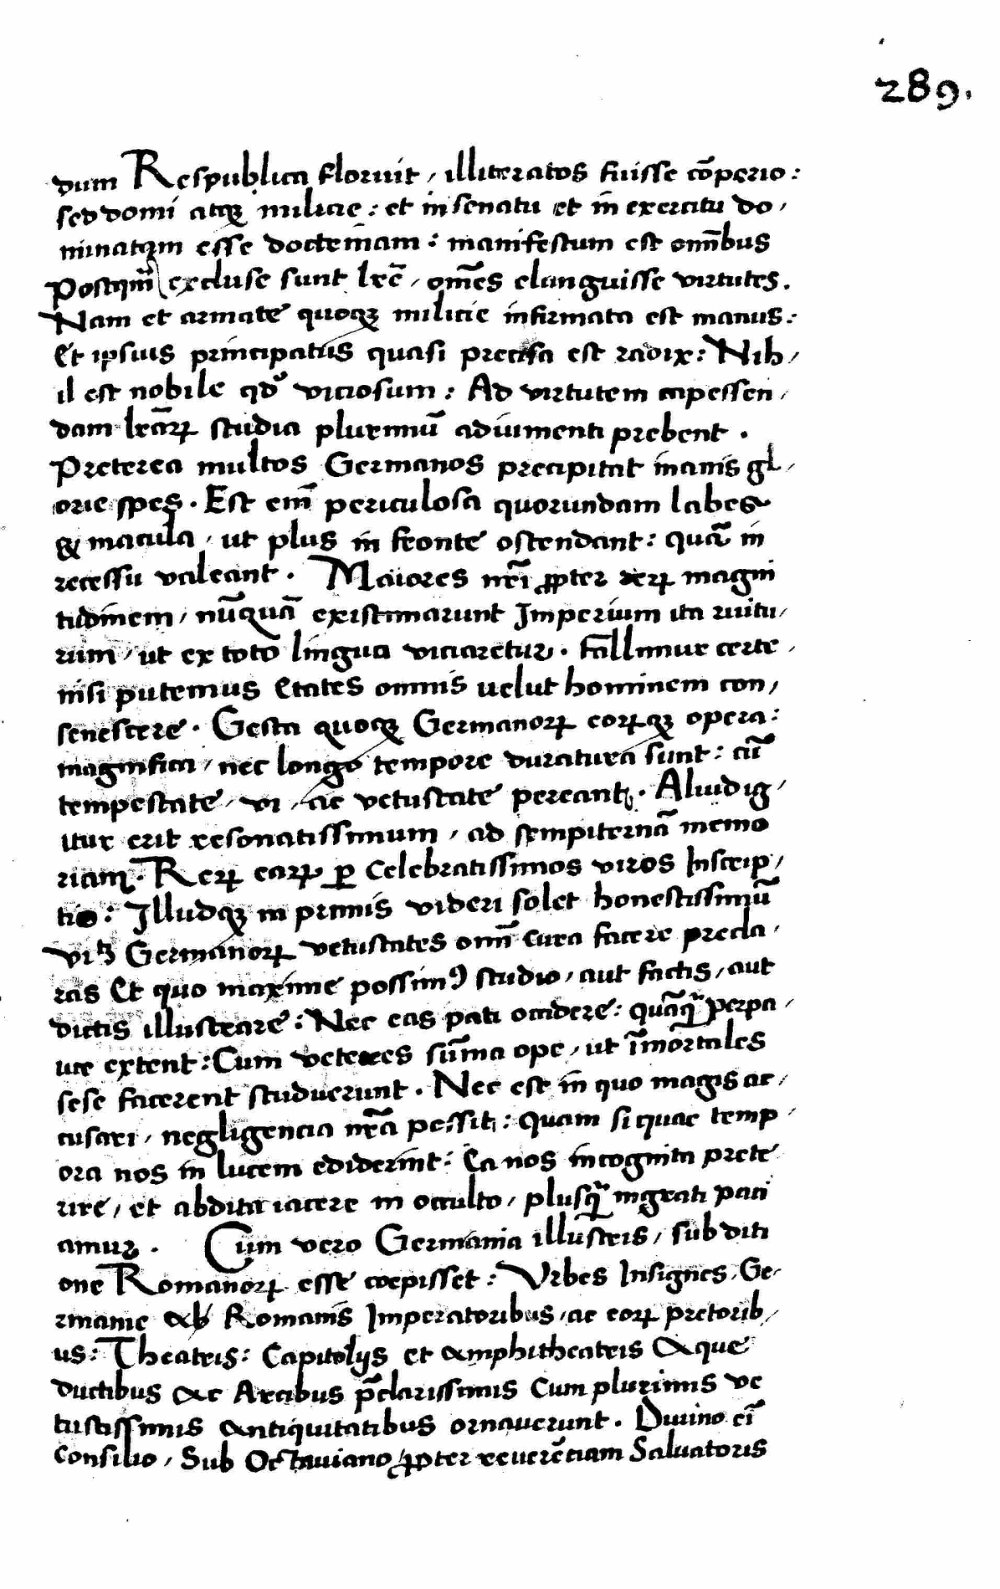 289.
dum Respublica floruit, illiteratos fuisse cōperio:
sed domi atq; milicie: et in senatu et in exercitu do,
minatam esse doctrinam: manifestum est omnibus
Postqm̄ excluse sunt lrē, om̄es elanguisse virtutes.
Nam et armate quoq; milicie infirmata est manus:
Et ipsius principatus quasi precisa est radix: Nih,
il est nobile qd' viciosum: Ad virtutem capessen,
dam lrāꝝ studia plurimū adiumenti prebent.
Preterea multos Germanos precipitat inanis gl,
orie spes. Est em̄ periculosa quorundam labes
& macula, ut plus in fronte ostendant: quā in
recessu valeant. Maiores nr̄i ꝓpter reꝝ magni
tudinem, nūquā existimarunt Imperium ita ruitu,
rum, ut ex toto lingua viciaretur. Fallimur certe,
nisi putemus Etates omnis velut hominem con,
senescere. Gesta quoq; Germanoꝝ eoꝝq; opera:
magnifica, nec longo tempore duratura sunt: cū
tempestate, vi, ac vetustate pereant. Aliudig,
itur erit resonatissimum, ad sempiternā memo
riam. Reꝝ eaꝝ ꝑ Celebratissimos viros Inscrip,
tio: Illudq; in primis videri solet honestissimū
Germanoꝝ vetustates omī cura facere precla,
ras Et quo maxime possim⁹ studio, aut factis, aut
dictis illustrare: Nec eas pati occidere: quāq̄ perpa,
uce extent: Cum veteres sūma ope, ut īmortales
sese facerent studuerunt. Nec est in quo magis ac,
cusari, negligencia nr̄a possit: quam si quae temp,
ora nos in lucem ediderint: Ea nos incognita prete
rire, et abdita iacere in occulto, plusq̄ ingrati paci
amur. Cum vero Germania illustris, sub diti
one Romanoꝝ esse coepisset: Vrbes Insignes, Ge,
rmanie ab Romanis Imperatoribus, ac eoꝝ pretorib,
us: Theatris: Capitolijs et amphitheatris Aque
ductibus ac Arcibus p̄clarissimis Cum plurimis ve
tustissimis antiquitatibus ornaverunt. Diuino eī
Consilio, Sub Octauiano ꝓpter reuerētiam Saluatoris